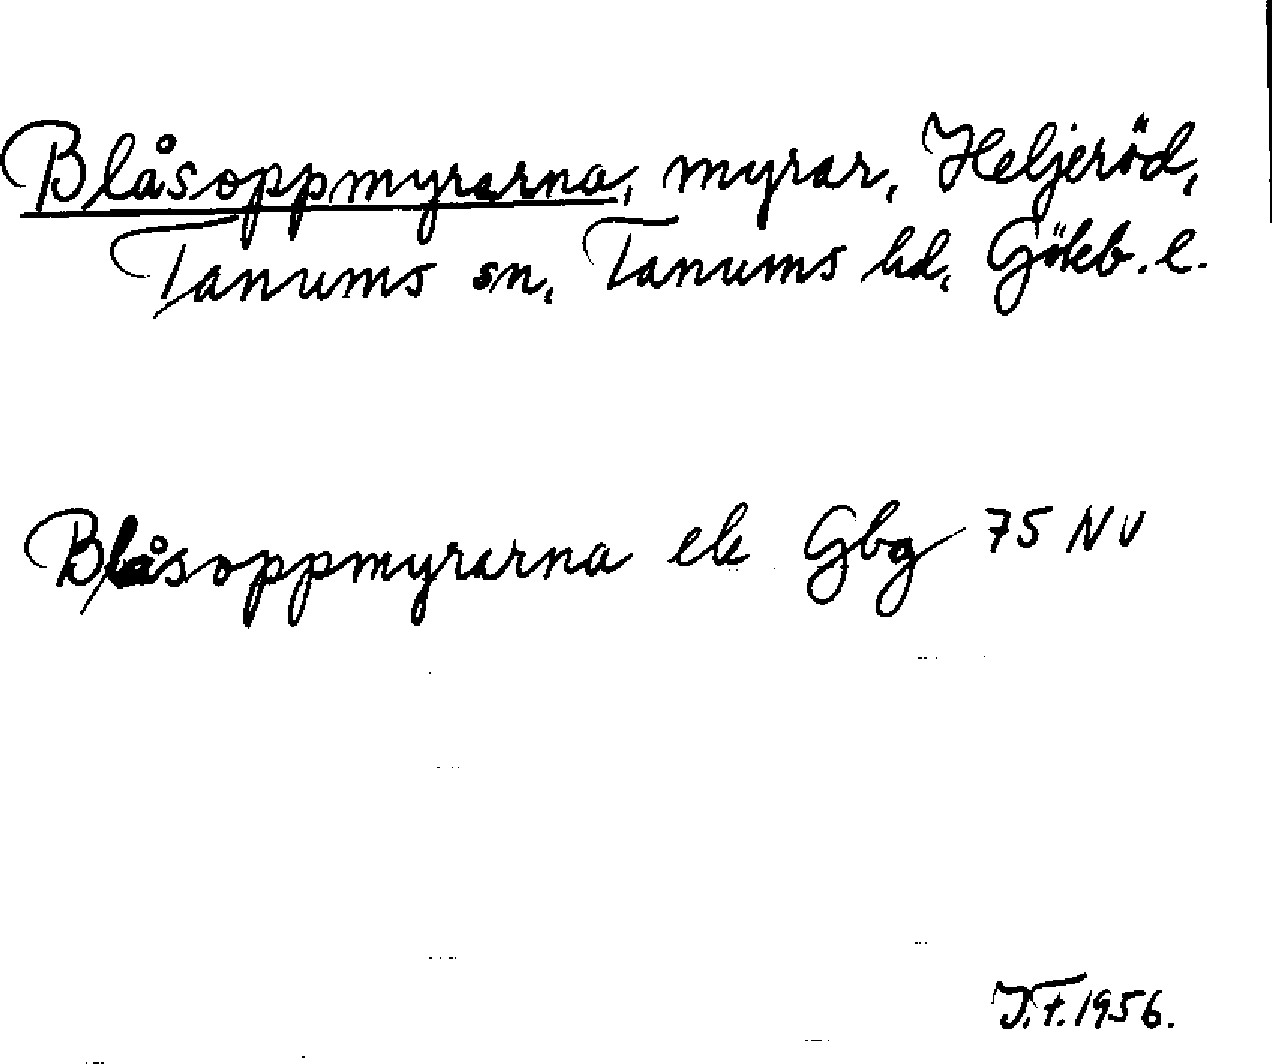 Blåsoppmyrarna, myrar, Heljeröd,
Tanums sn, Tanums hd, Gökb. l.
Blåsoppmyrarna ek Gbg 75 NV
J.F. 1956.